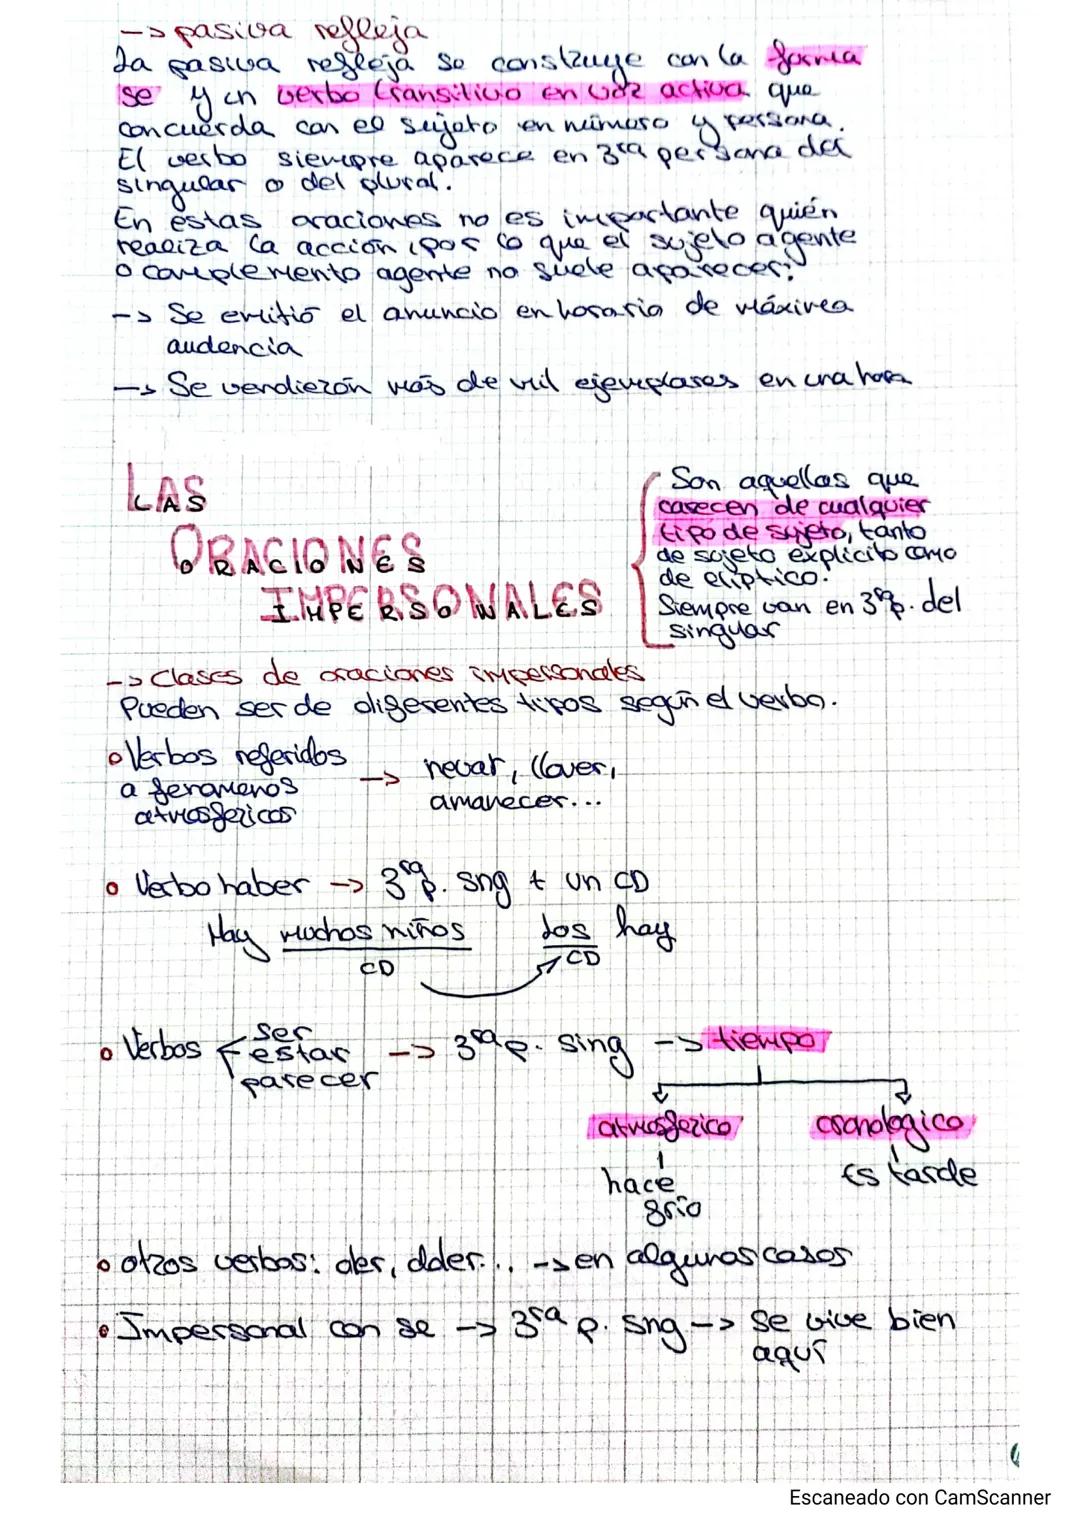 -> pasiva refleja
La pasiva refleja se construye con la forma
se y un verbo transitivo en voz activa que
concuerda con el sujeto en número y persona.
El verbo siempre aparece en 3ra persona del
singular o del plural.
En estas oraciones no es importante quién
realiza la acción, por lo que el sujeto agente
o complemento agente no suele aparecer:
-> Se emitió el anuncio en horario de máxima
audencia
-> Se vendierón más de mil ejemplares en una hora
LAS
ORACIONES
IMPERSONALES
Son aquellas que
carecen de cualquier
tipo de sujeto, tanto
de sujeto explícito como
de elíptico.
Siempre van en 3ªp. del
singular
-> Clases de oraciones impersonales
Pueden ser de diferentes tipos según el verbo.
Verbos referidos
a fenomenos
atmosfericos
-> nevar, llover,
amanecer...
Verbo haber -> 3ra p. sng + un CD
Hay muchos niños Los hay
CD CD
Verbos ser
estar
parecer
-> 3ra p. sing -> tiempo
atmosferico cronologico
hace
frio
Es tarde
otros verbos: oler, doler... -> en algunos casos
Impersonal con se -> 3ra p. sng -> Se vive bien
aquí
Escaneado con CamScanner